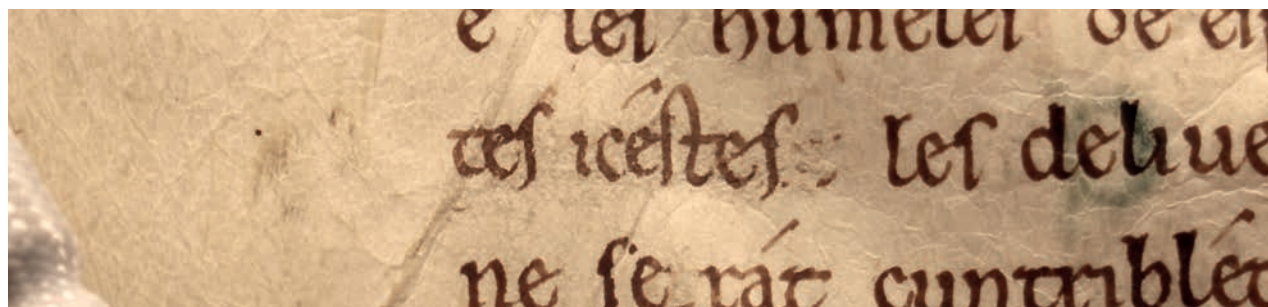 e leſ humeleſ de eſp
teſ icéſteſ : leſ deliue
ne ſe rát cuntriblét